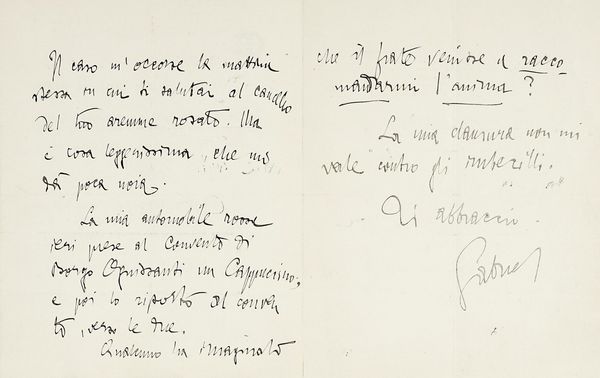 Il caso m'occorse la mattina
stessa in cui ti salutai al cancello
del tuo eremo rosato. Ma
è cosa leggerissima, che mi
dà poca noia.
La mia automobile rossa
ieri prese al Convento di
Borgo Ognissanti un Cappuccino,
e poi lo riportò al conven
to, verso le due.
Qualcuno ha immaginato
che il frate venisse a racco
mandarmi l'anima?
La mia clausura non mi
vale contro gli imbecilli.
Ti abbraccio.
Gabriel